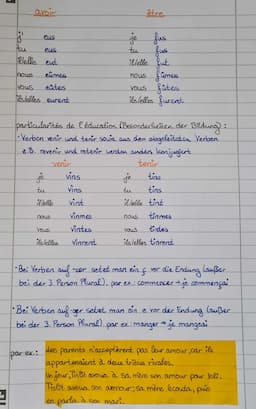 avoir être
j' eus je fus
tu eus tu fus
il/elle eut il/elle fut
nous eûmes nous fûmes
vous eûtes vous fûtes
ils/elles eurent ils/elles furent
particularités de l'éducation (Besonderheiten der Bildung):
• Verben venir und tenir sowie aus den abgeleiteten Verben
z.B. revenir und retenir werden anders konjugiert
venir tenir
je vins je tins
tu vins tu tins
il/elle vint il/elle tint
nous vînmes nous tînmes
vous vîntes vous
ils/elles vinrent ils/elles tinrent
• Bei Verben auf -cer setzt man ein ç vor die Endung (außer
bei der 3. Person Plural). par ex: commencer → je commençai
• Bei Verben auf -ger setzt man ein e vor der Endung (außer
bei der 3. Person Plural). par ex: manger → je mangeai
par ex.: des parents n'acceptèrent pas leur amour, car ils
appartenaient à deux tribus rivales.
Un jour, Titit avoua à sa mère son amour pour Isli.
Titit avoua son amour; sa mère écouta, puis
en parla à son mari.